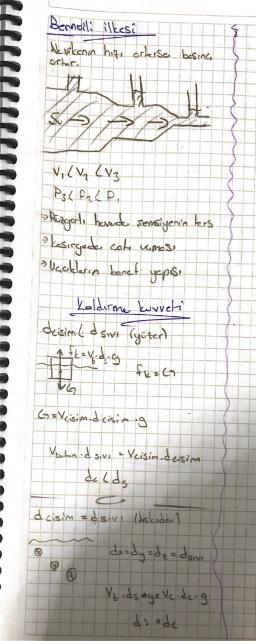 Bernolli ilkesi
Akışkanın hızı artarsa basınç
artar.
Su
V₁ < V₂ < V₃
P₃ < P₂ < P₁
→ Rüzgarlı havada şemsiyenin ters
→ kasırgada çatı uçması
→ Uçakların kanat yapısı
Kaldırma kuvveti
dcisim < d sıvı (yüzer)
fk = Vb.ds.g
fk = G
G
G = Vcisim.dcisim.g
Vbatan.d sıvı = Vcisim.dcisim
dc < ds
dcisim = d sıvı (Askıda)
dx = dy = dz = dsıvı
Vb.ds.g = Vc.dc.g
ds = dc